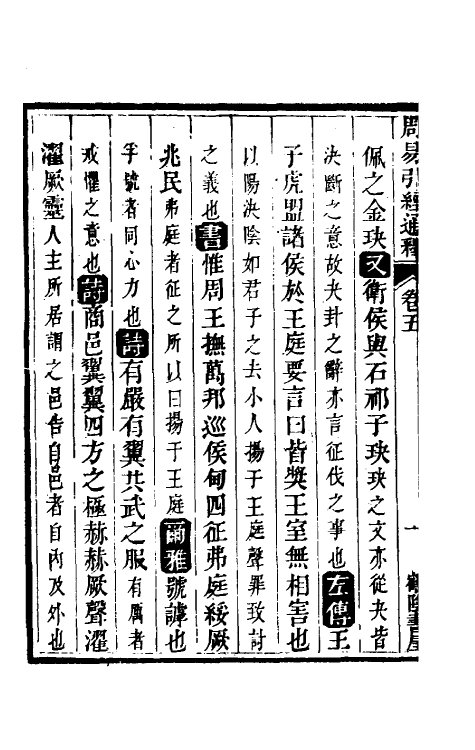 周易引經通釋 卷五 一
佩之金玦又衛侯與石祁子玦玦之文亦從夬皆
決斷之意故夬卦之辭亦言征伐之事也左傳王
子虎盟諸侯於王庭要言曰皆獎王室無相害也
以陽決陰如君子之去小人揚于王庭聲罪致討
之義也書惟周王撫萬邦巡侯甸四征弗庭綏厥
兆民弗庭者征之所以曰揚于王庭爾雅號謼也
孚號者同心力也詩有嚴有翼共武之服有厲者
戒懼之意也詩商邑翼翼四方之極赫赫厥聲濯
濯厥靈人主所居謂之邑告自邑者自內及外也